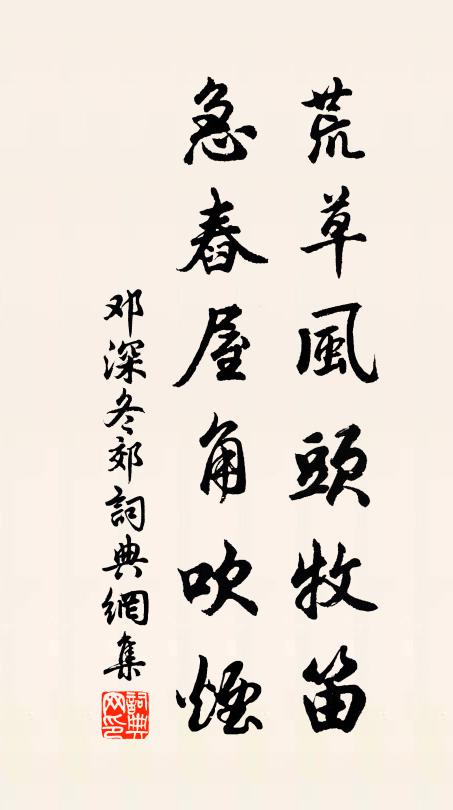 荒草風頭牧笛
急舂屋角吹煙
邓深冬郊詞典網集
詞典网印